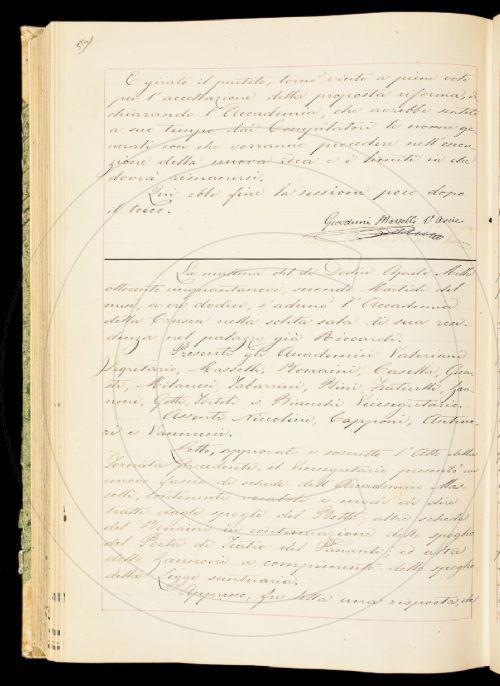 E girato il partito, tornò vinto a pieni voti
per l'accettazione della proposta riforma, di
chiarando l'Accademia, che avrebbe sentito
a suo tempo dai Compilatori le norme ge
nerali con che vorranno procedere nell'esecu
zione della nuova idea e i limiti in che
dovrà rimanersi.
Qui ebbe fine la sessione poco dopo
il tocco.
Giovanni Masselli V. Arcic.
La mattina del dì Dodici Aprile Mille
ottocento cinquantanove, secondo Martedì del
mese, a ore dodici, s'adunò l'Accademia
della Crusca nella solita sala di sua resi
denza nel palazzo già Riccardi.
Presenti gli Accademici Valeriani
Segretario, Masselli, Bonaini, Casella, Gua
sti, Milanesi, Tabarrini, Bini, Zan
noni, Gotti, Tortoli e Bianchi Vicesegretario.
Assenti Niccolini, Capponi, Antino
ri e Vannucci.
Letto, approvato e soscritto l'Atto della
Tornata precedente, il Vicesegretario presentò un
nuovo fascio di schede dell'Accademico Mas
selli, contenenti vocaboli e modi di dire
tratti dagli spogli del Betti; altre schede
del Bonaini in continuazione dello spoglio
del Porta di Teatro del Fanfani; ed altra
dello Zannoni a compimento dello spoglio
della Legge suntuaria.
Appresso, fu letta una risposta, che